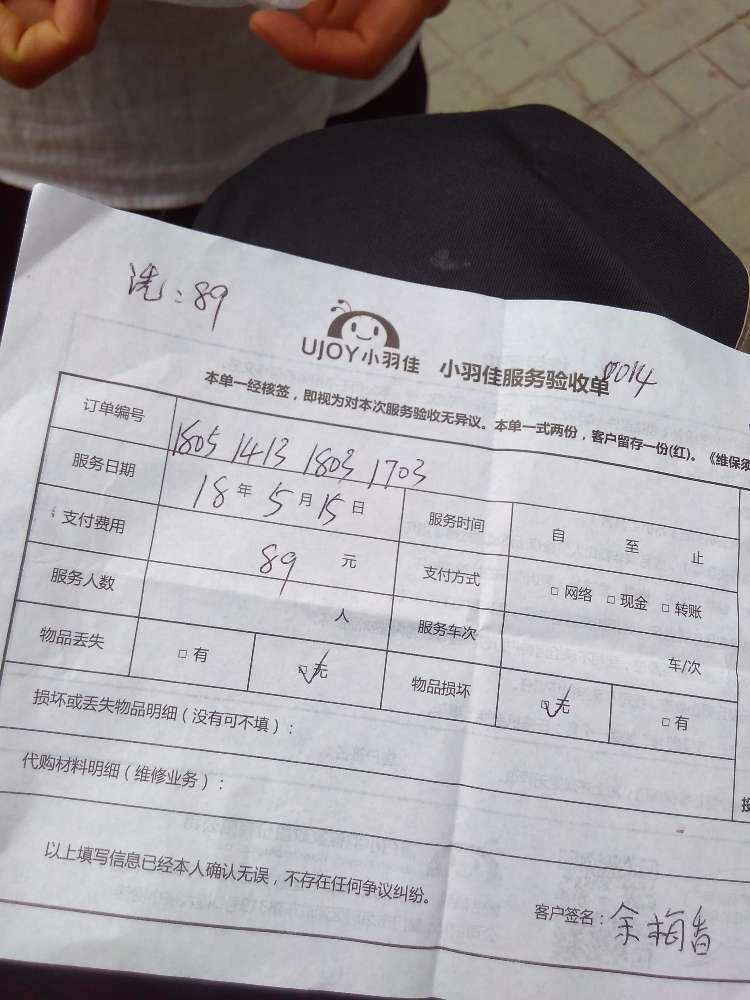 洗：89
UJOY小羽佳 小羽佳服务验收单 0014
本单一经核签，即视为对本次服务验收无异议。本单一式两份，客户留存一份(红)。《维保须
订单编号 1805 1413 1803 1703
服务日期 18年5月15日 服务时间 自 至 止
支付费用 89元 支付方式 □网络 □现金 □转账
服务人数 人 服务车次 车/次
物品丢失 □有 ☑无 物品损坏 ☑无 □有
损坏或丢失物品明细（没有可不填）：
代购材料明细（维修业务）：
以上填写信息已经本人确认无误，不存在任何争议纠纷。
客户签名：余梅香